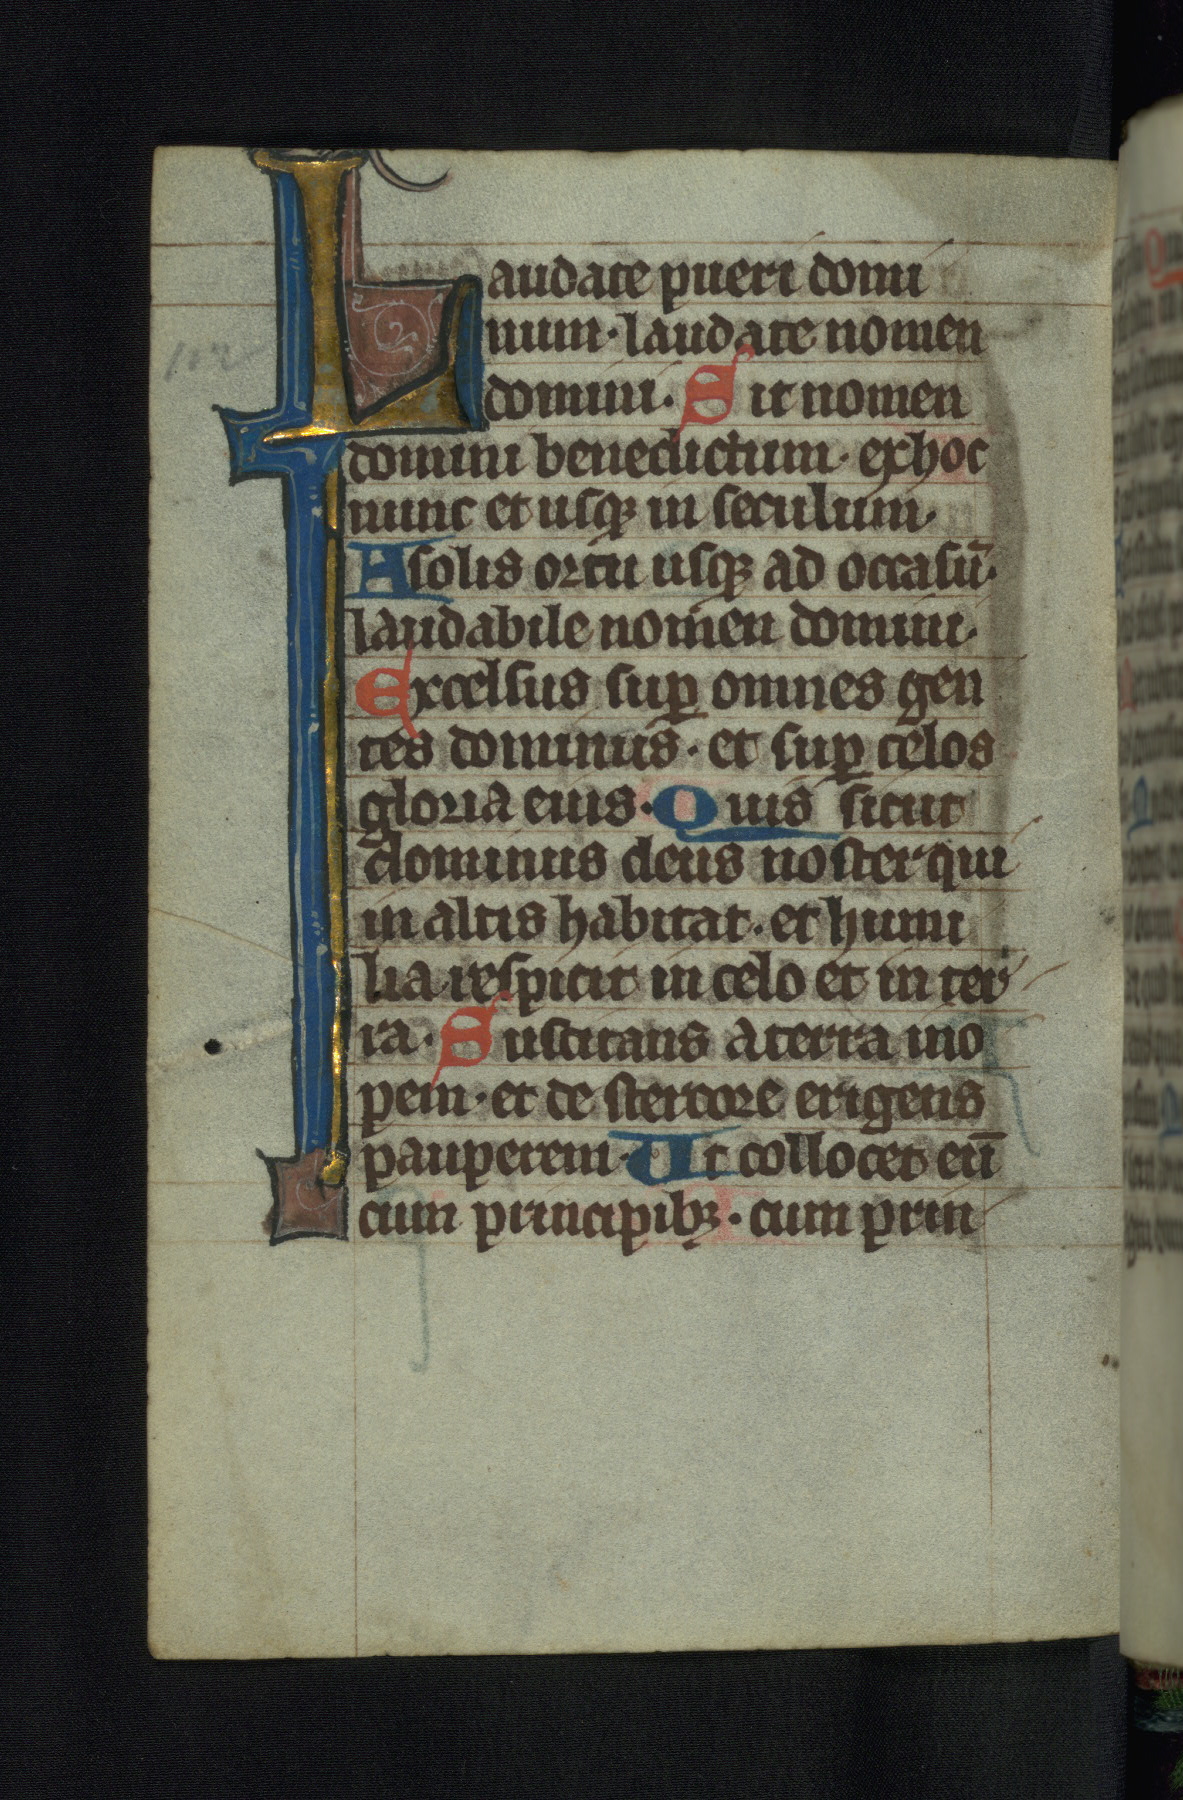 112
Laudate pueri domi
num · laudate nomen
domini · Sit nomen
domini benedictum · ex hoc
nunc et usqꝫ in seculum ·
A solis ortu usqꝫ ad occasū ·
laudabile nomen domini ·
Excelsus suꝑ omnes gen
tes dominus · et suꝑ celos
gloria eius · Quis sicut
dominus deus noster qui
in altis habitat · et humi
lia respicit in celo et in ter
ra · Suscitans a terra ino
pem · et de stercore erigens
pauperem · Ut collocet eū
cum principibꝫ · cum prin